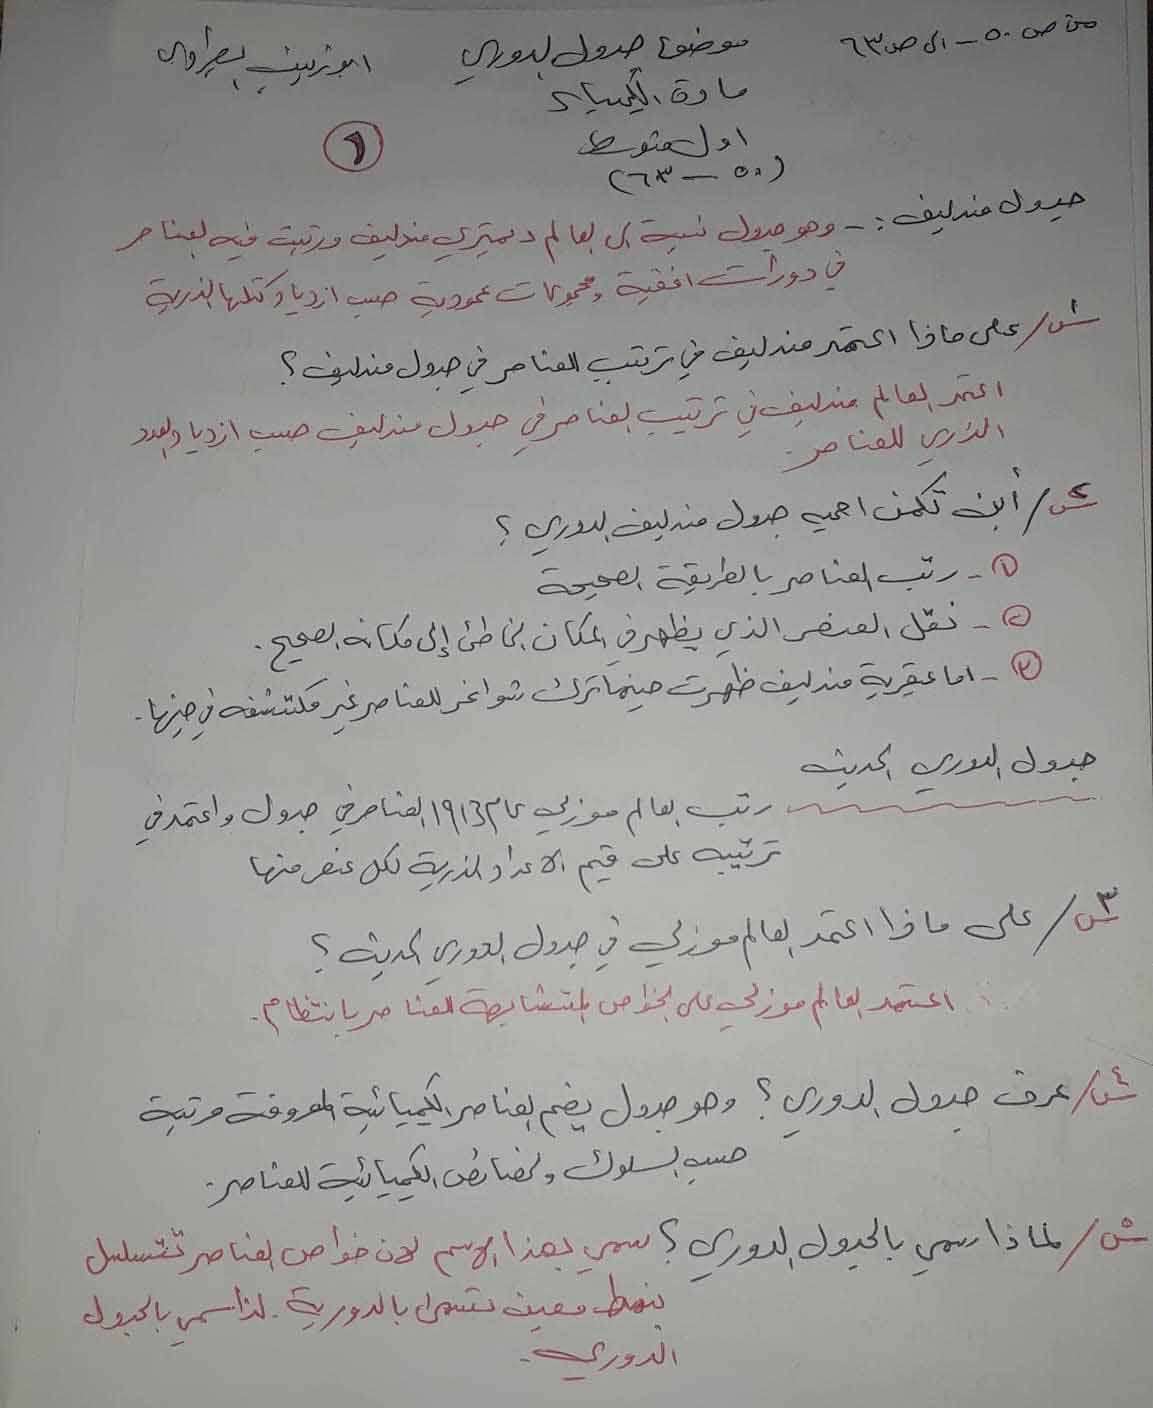 من ص ٥٠ - الى ص ٦٣
موضوع جدول الدوري
مادة الكيمياء
اول متوسط
(٥٠ - ٦٣)
١
جدول مندليف :- وهو جدول نسبة الى العالم ديمتري مندليف ورتبت فيه العناصر
في دورات افقية ومجموعات عمودية حسب ازدياد كتلها الذرية
س١/ على ماذا اعتمد مندليف في ترتيب العناصر في جدول مندليف ؟
اعتمد العالم مندليف في ترتيب العناصر في جدول مندليف حسب ازدياد العدد
الذري للعناصر.
س٢/ أين تكمن اهميه جدول مندليف الدوري ؟
١- رتب العناصر بالطريقة الصحيحة
٢- نقل العنصر الذي يظهر في المكان الخاطئ إلى مكانه الصحيح.
٣- اما عبقرية مندليف ظهرت حينما ترك شواغر للعناصر غير مكتشفه في حينها.
جدول الدوري الحديث
رتب العالم موزلي عام ١٩١٣ العناصر في جدول واعتمد في
ترتيبه على قيم الاعداد الذرية لكل عنصر منها
س٣/ على ماذا اعتمد العالم موزلي في جدول الدوري الحديث ؟
اعتمد العالم موزلي على الخواص المتشابهة للعناصر بانتظام.
س٤/ عرف جدول الدوري ؟ وهو جدول يضم العناصر الكيميائية المعروفة مرتبة
حسب السلوك والخصائص الكيميائية للعناصر.
س٥/ لماذا سمي بالجدول الدوري ؟ سمي بهذا الاسم لان خواص العناصر تتسلسل
بنمط معين تسمى بالدورية. لذا سمي بالجدول
الدوري.